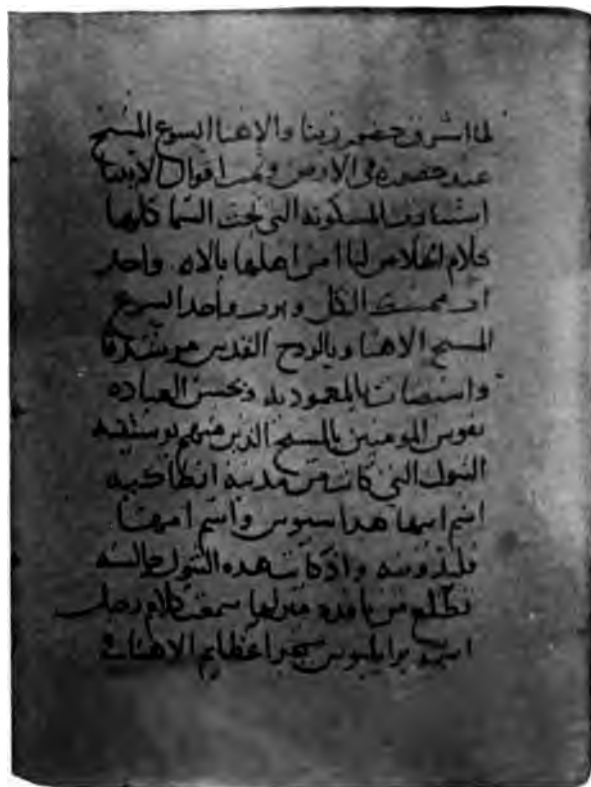 لما اشرق حضور ربنا والاهنا ايسوع المسيح
عند حضوره في الارض وتمت اقوال الانبيا
استنارت المسكونه التي تحت السما كلها
كلام الخلاص لما امن اهلها بالاه واحد
اب ممسك الكل وبرب واحد ايسوع
المسيح الاهنا وبالروح القدس
واستضات بالمعموديه وبحسن العباده
نفوس المومنين بالمسيح الذين منهم يوستينه
البتول التي كانت من مدينه انطاكيه
اسم ابيها هداسيوس واسم امها
قليدونيه واذ كانت هذه البتول جالسه
تطلع من طاقه منزلها سمعت كلام رجل
اسمه برايليوس يخبر اعظايم الاهنا